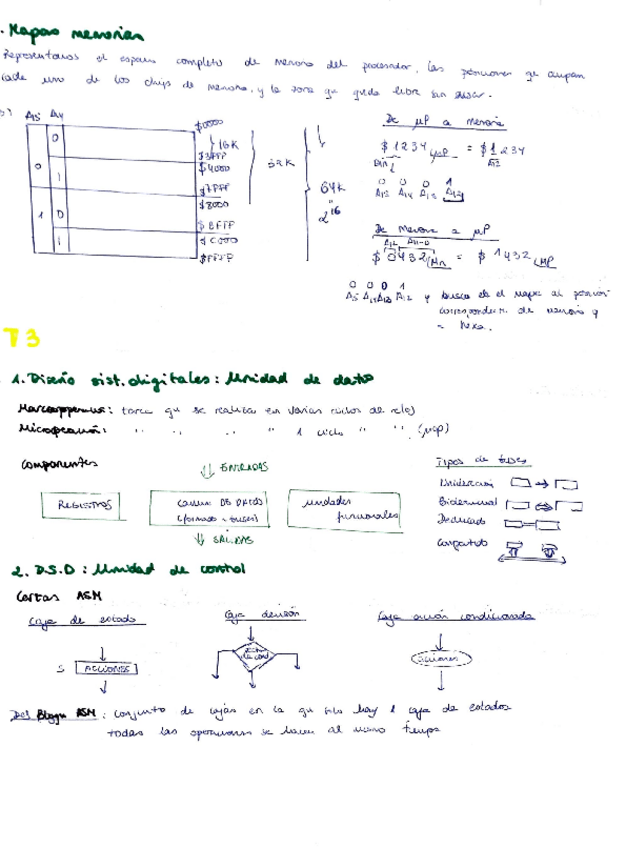 . Mapas memorias
Representamos el espacio completo de memoria del procesador, las posiciones qe ocupan
cada uno de los chips de memoria, y la zona qu queda libre sin usar.
A15 A14
0
0
1
1
0
1
$0000
$3FFF
$4000
$7FFF
$8000
$BFFF
$C000
$FFFF
16K
32K
64K
2^16
De µP a memoria
$1234 µP = $1234
0 0 0 1
A15 A14 A13 A12
De Memoria a µP
A12 A11-0
$0432 Mn = $1432 µP
0 0 0 1
A15 A14 A13 A12 y busco en el mapa la posición
correspondiente de memoria y
T3
1. Diseño sist. digitales: Unidad de datos
Macrooperación: tarea qu se realiza en varios ciclos de reloj
Microoperación: " " " " 1 ciclo " " (µop)
Componentes
ENTRADAS
REGISTROS
CAMINO DE DATOS
(formado x buses)
unidades
funcionales
SALIDAS
Tipos de buses
Unidireccional
Bidireccional
Dedicado
Compartido
2. D.S.D: Unidad de control
Cartas ASM
Caja de estado
Caja decisión
Caja acción condicionada
S ACCIONES
acciones
Def Bloque ASM: conjunto de cajas en la qu solo hay 1 caja de estados
todas las operaciones se hacen al mismo tiempo